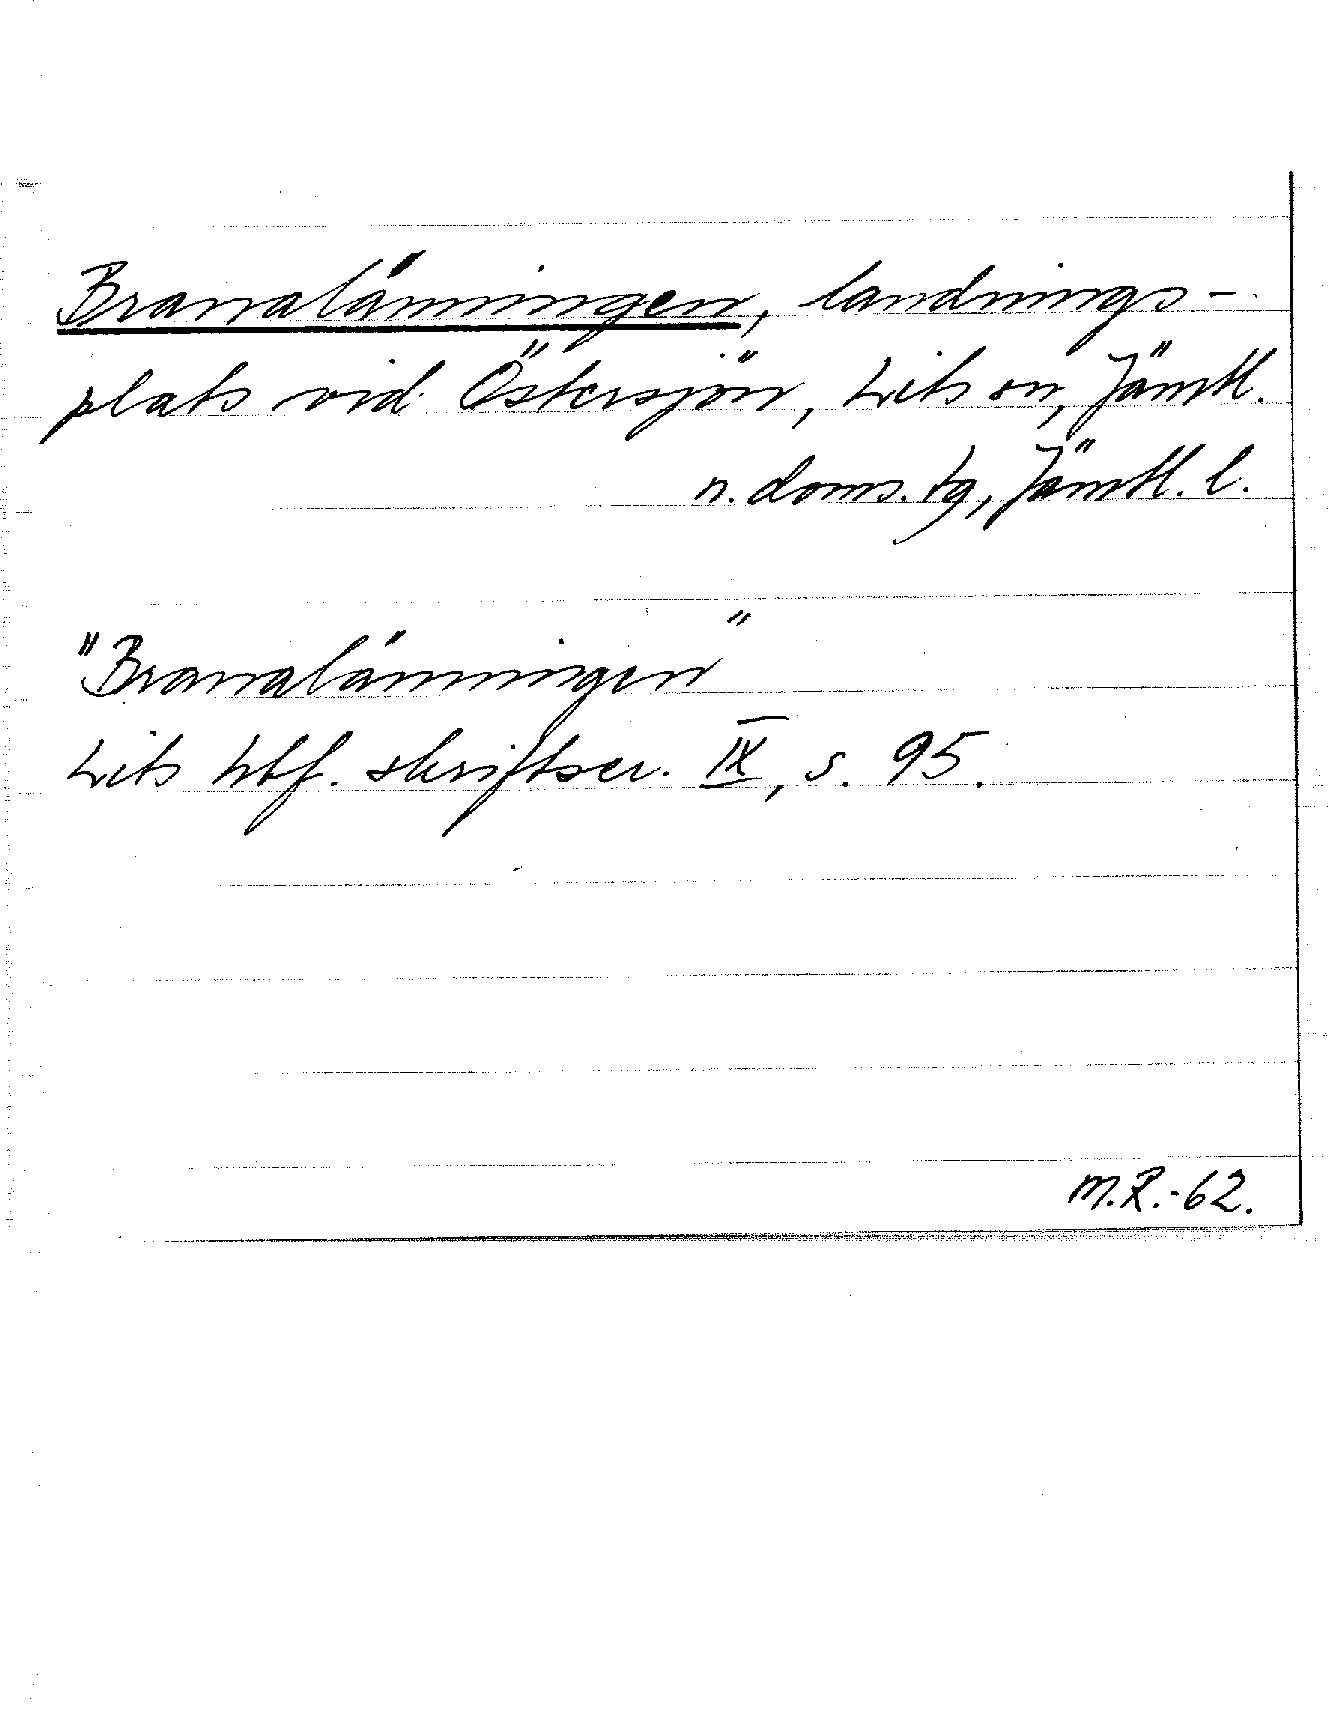 Brannalänningen, landnings-
plats vid Östersjön, Lits sn, Jämtl.
n. doms. tg, Jämtl. l.
"Brannalänningen"
Lits hbf. skriftser. IX, s. 95.
M.R.-62.